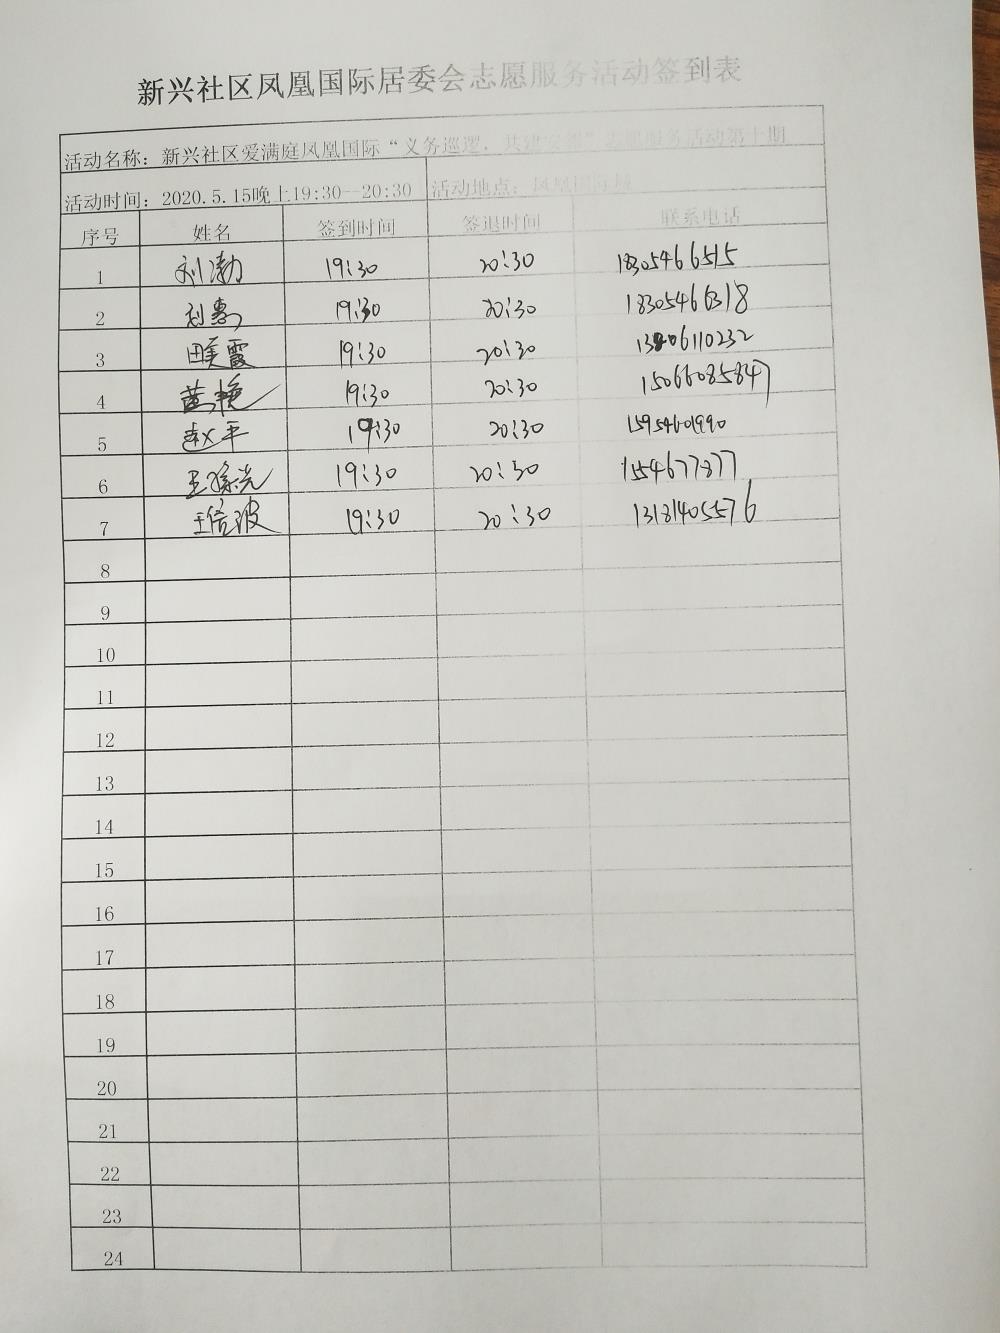 新兴社区凤凰国际居委会志愿服务活动签到表
活动名称：新兴社区爱满庭凤凰国际“义务巡逻，共建安全”志愿服务活动第十期
活动时间：2020.5.15晚上19:30--20:30 活动地点：凤凰国际城
序号 姓名 签到时间 签退时间 联系电话
1 刘渤 19:30 20:30 18305466515
2 刘惠 19:30 20:30 18305466318
3 田美霞 19:30 20:30
4 黄艳 19:30 20:30 15066085847
5 赵平 19:30 20:30 15954601990
6 19:30 20:30
7 王信波 19:30 20:30 13181405576
8
9
10
11
12
13
14
15
16
17
18
19
20
21
22
23
24